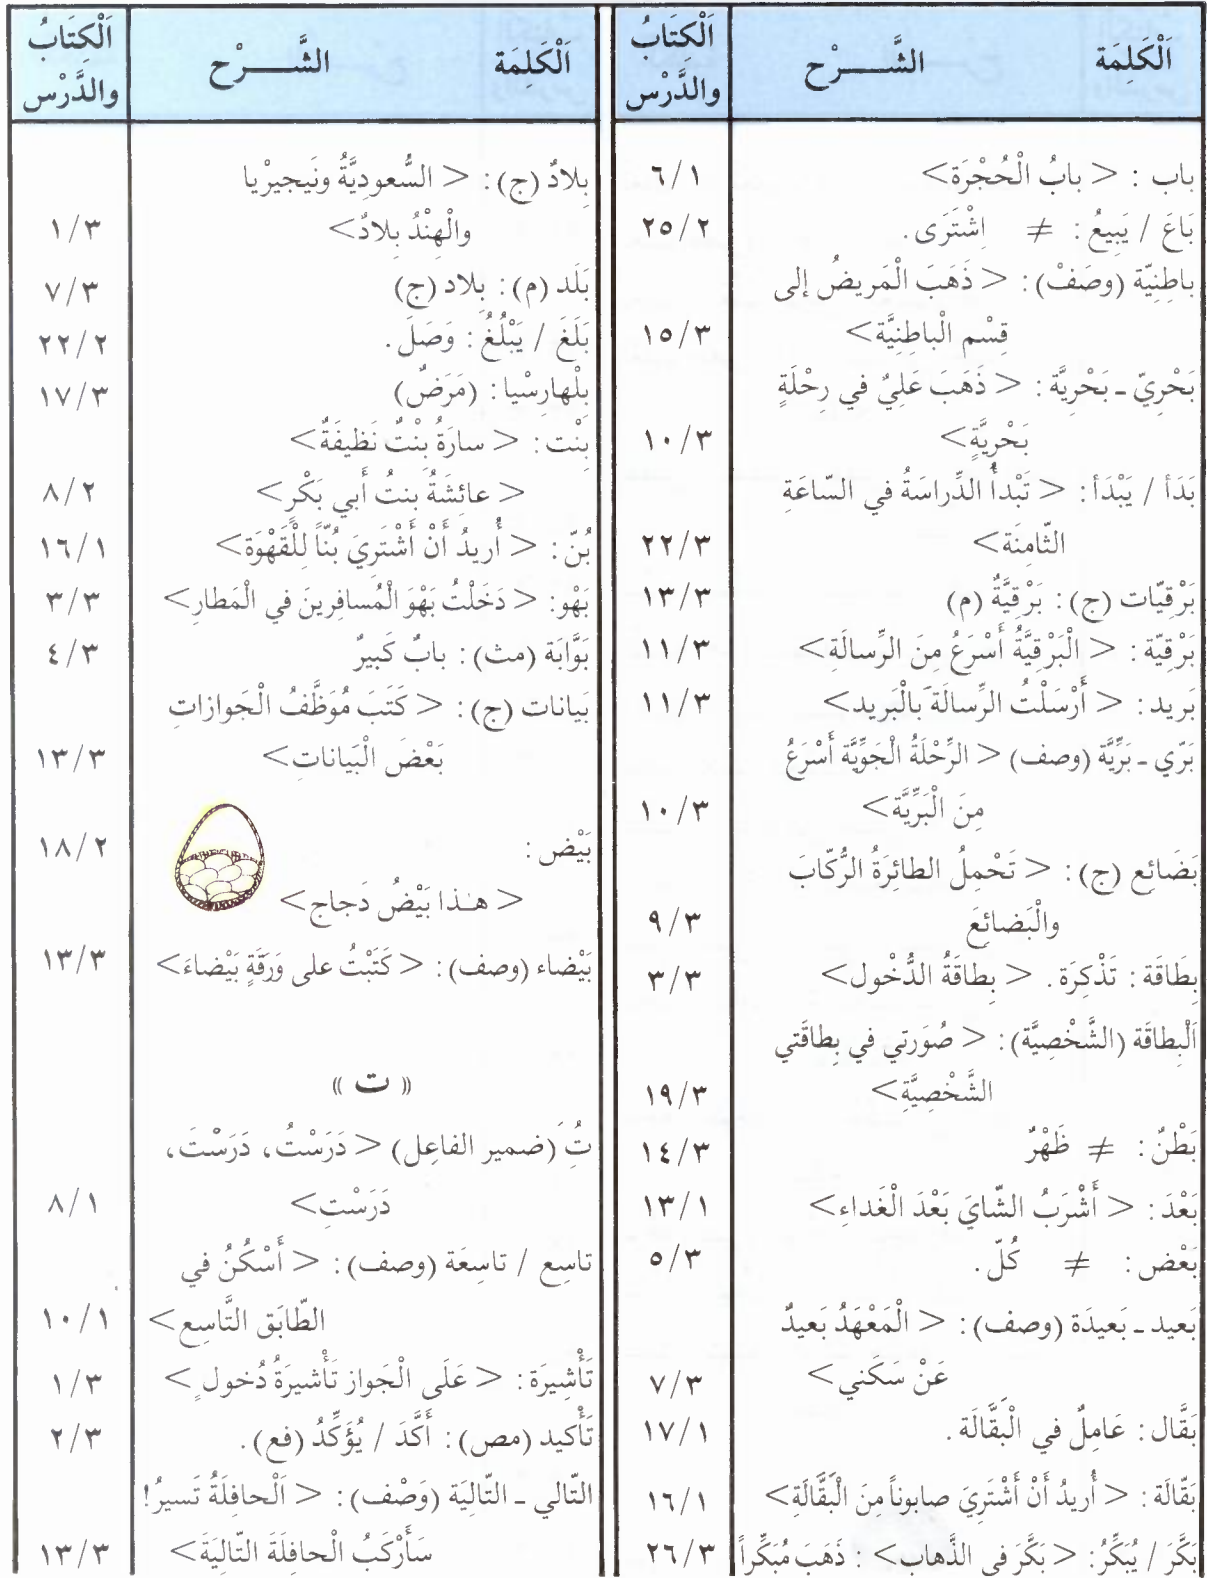 اَلْكَلِمَة الشَّـــــرْح اَلْكِتَابُ والدَّرْس
باب : < بابُ الْحُجْرَة> ٦/١
بَاعَ / يَبِيعُ : ≠ اِشْتَرَى . ٢٥/٢
باطِنِيّة (وصَفْ) : < ذَهَبَ الْمَريضُ إلى
قِسْم الْباطِنِيَّة> ١٥/٣
بَحْرِيّ ـ بَحْرِيَّة : < ذَهَبَ عَلِيٌ في رِحْلَةٍ
بَحْرِيَّةٍ> ١٠/٣
بَدَأ / يَبْدَأ : < تَبْدأُ الدِّراسَةُ في السّاعَةِ
الثّامِنَة> ٢٢/٣
بَرْقِيّات (ج) : بَرْقِيَّةٌ (م) ١٣/٣
بَرْقِيّة : < الْبَرْقِيَّةُ أَسْرَعُ مِنَ الرِّسالَةِ> ١١/٣
بَريد : < أَرْسَلْتُ الرِّسالَةَ بالْبَريد> ١١/٣
بَرّي ـ بَرِّيَّة (وصف) < الرِّحْلَةُ الْجَوِّيَّة أَسْرَعُ
مِنَ الْبَرِّيَّة> ١٠/٣
بَضَائِع (ج) : < تَحْمِلُ الطائِرَةُ الرُّكّابَ
والْبَضائِعَ ٩/٣
بِطَاقَة : تَذْكِرَة . < بِطاقَةُ الدُّخْول> ٣/٣
اَلْبِطاقَة (الشَّخْصِيَّة) : < صُوَرتي في بِطاقَتي
الشَّخْصِيَّةِ> ١٩/٣
بَطْنٌ : ≠ ظَهْرٌ ١٤/٣
بَعْدَ : < أَشْرَبُ الشّايَ بَعْدَ الْغَداءِ> ١٣/١
بَعْض : ≠ كُلّ . ٥/٣
بَعيد ـ بَعيدَة (وصف) : < الْمَعْهَدُ بَعيدٌ
عَنْ سَكَني> ٧/٣
بَقَّال : عَامِلٌ في الْبَقَّالَة . ١٧/١
بَقّالَة : < أُريدُ أَنْ أَشْتَرِيَ صابوناً مِنَ الْبَقَّالَةِ> ١٦/١
بَكَّرَ / يُبَكِّرُ : < بَكَّرَ في الذَّهاب> : ذَهَبَ مُبَكِّراً ٢٦/٣
اَلْكَلِمَة الشَّـــــرْح اَلْكِتَابُ والدَّرْس
بِلادٌ (ج) : < السُّعودِيَّةُ ونَيجيرْيا
والْهِنْدُ بِلادٌ> ١/٣
بَلَد (م) : بِلاد (ج) ٧/٣
بَلَغَ / يَبْلُغُ : وَصَلَ . ٢٢/٢
بِلْهارسْيا : (مَرَضٌ) ١٧/٣
بِنْت : < سارَةُ بِنْتٌ نَظيفَةٌ>
< عائِشَةُ بِنتُ أَبي بَكْرٍ> ٨/٢
بُنّ : < أُريدُ أَنْ أَشْتَرِيَ بُنّاً لِلْقَهْوَة> ١٦/١
بَهْو: < دَخَلْتُ بَهْوَ الْمُسافِرينَ في الْمَطارِ> ٣/٣
بَوَّابَة (مث) : بابٌ كَبيرٌ ٤/٣
بَيانات (ج) : < كَتَبَ مُوَظَّفُ الْجَوازاتِ
بَعْضَ الْبَياناتِ> ١٣/٣
بَيْض : ١٨/٢
< هـٰذا بَيْضُ دَجاج>
بَيْضاء (وصف) : < كَتَبْتُ على وَرَقَةٍ بَيْضاءَ> ١٣/٣
« ت »
تُ (ضمير الفاعِل) < دَرَسْتُ، دَرَسْتَ،
دَرَسْتِ> ٨/١
تاسِع / تاسِعَة (وصف) : < أَسْكُنُ في
الطّابَق التَّاسِع> ١٠/١
تَأْشِيرَة : < عَلَى الْجَواز تَأْشيرَةُ دُخول> ١/٣
تَأْكيد (مص) : أَكَّدَ / يُؤَكِّدُ (فع) . ٢/٣
التّالي ـ التّالِيَة (وَصْف) : < اَلْحافِلَةُ تَسيرُ!
سَأَرْكَبُ الْحافِلَةَ التّالِيَةَ> ١٣/٣